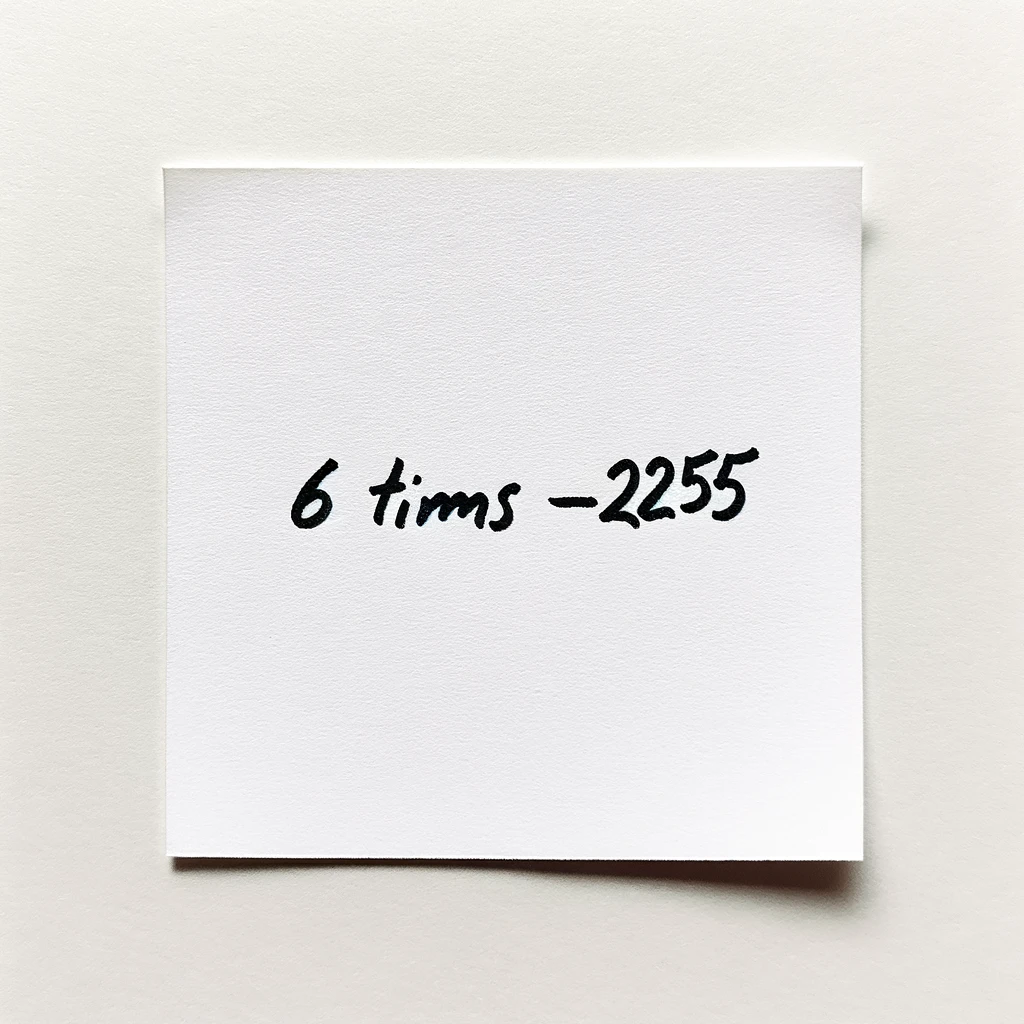 6 timms -2255